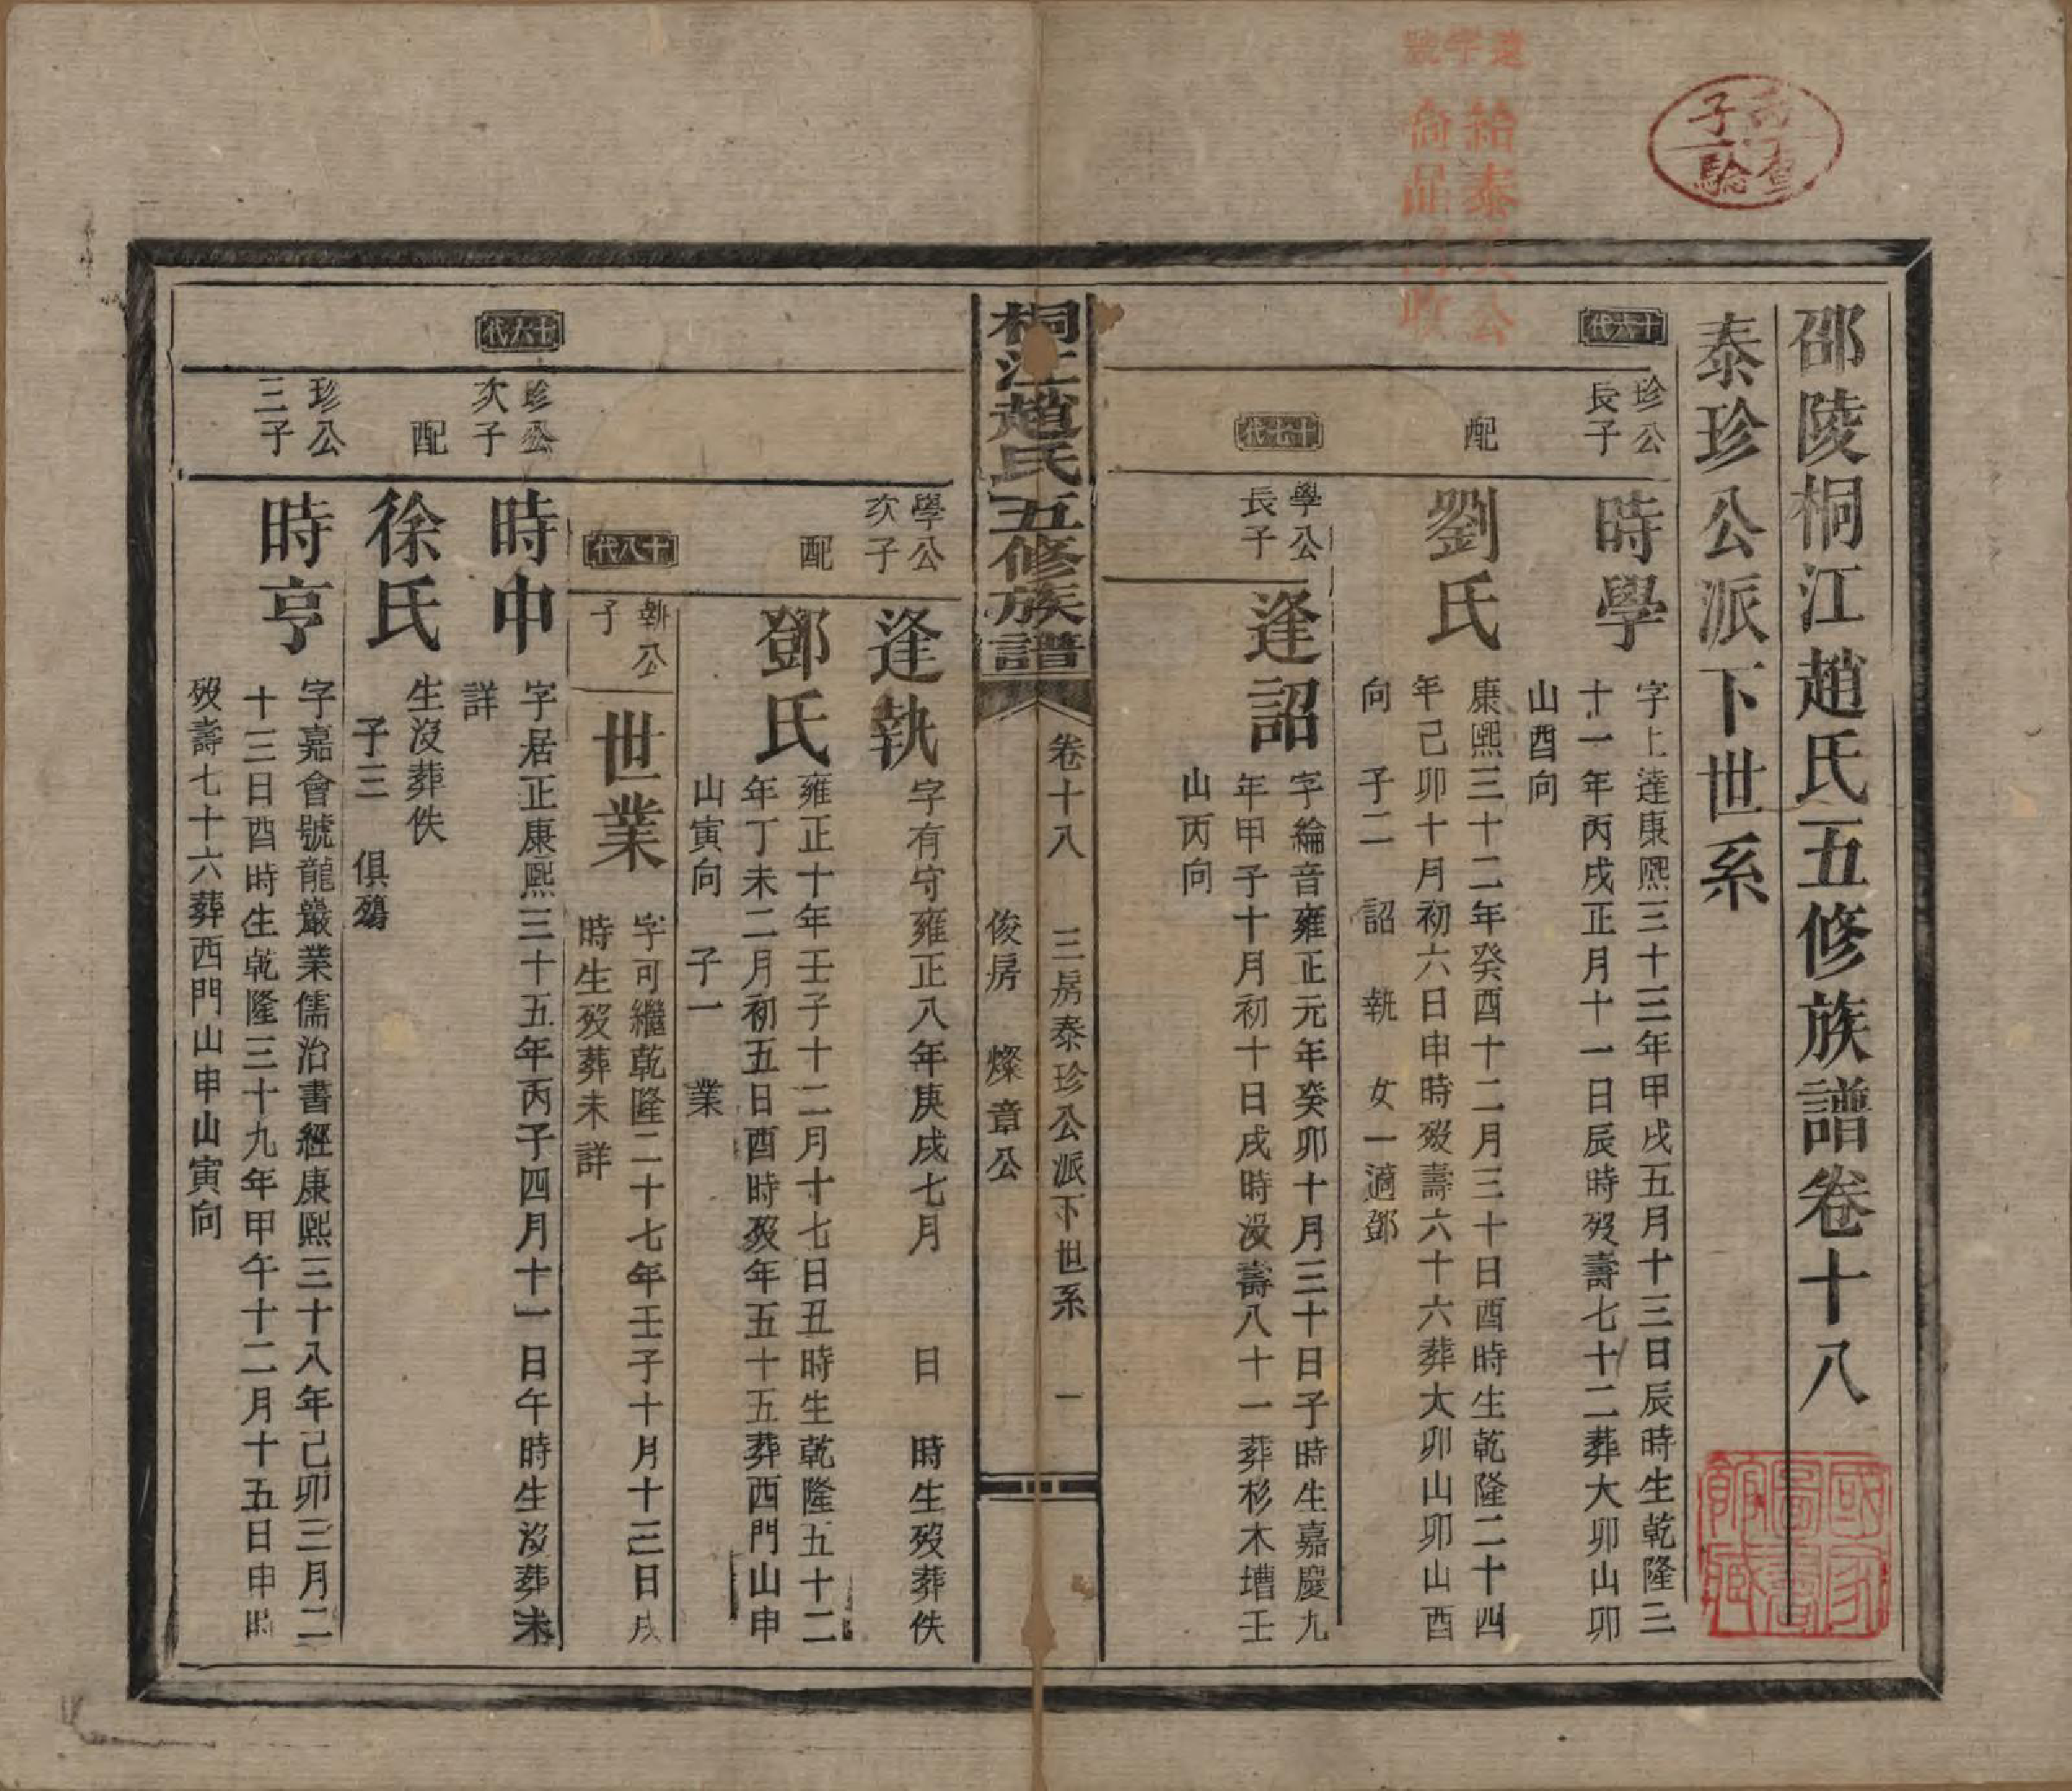 邵陵桐江趙氏五修族譜卷十八
泰珍公派下世系
十六代
珍公
長子
時學
字上達康熙三十三年甲戌五月十三日辰時生乾隆三
十一年丙戌正月十一日辰時歿壽七十二葬大卯山卯
山酉向
配
劉氏
康熙三十二年癸酉十二月三十日酉時生乾隆二十四
年己卯十月初六日申時歿壽六十六葬大卯山卯山酉
向 子二 詔 執 女一適鄧
十七代
學公
長子
逢詔
字綸音雍正元年癸卯十月三十日子時生嘉慶九
年甲子十月初十日戌時沒壽八十一葬杉木壋壬
山丙向
桐江趙氏五修族譜
卷十八 三房泰珍公派下世系 一
俊房 燦章公
學公
次子
逢執
字有守雍正八年庚戌七月 日 時生歿葬佚
配
鄧氏
雍正十年壬子十二月十七日丑時生乾隆五十二
年丁未二月初五日酉時歿年五十五葬西門山申
山寅向 子一 業
十八代
執公
子
世業
字可繼乾隆二十七年壬子十月十三日戌
時生歿葬未詳
十六代
珍公
次子
時中
字居正康熙三十五年丙子四月十一日午時生沒葬未
詳
配
徐氏
生沒葬佚
子三 俱殤
珍公
三子
時亨
字嘉會號龍巖業儒治書經康熙三十八年己卯三月二
十三日酉時生乾隆三十九年甲午十二月十五日申時
歿壽七十六葬西門山申山寅向
達字號
給泰公
尚品收
丙子查驗
國家圖書館藏